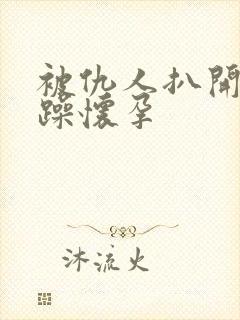 被仇人扒開
躁懷孕
沐流火